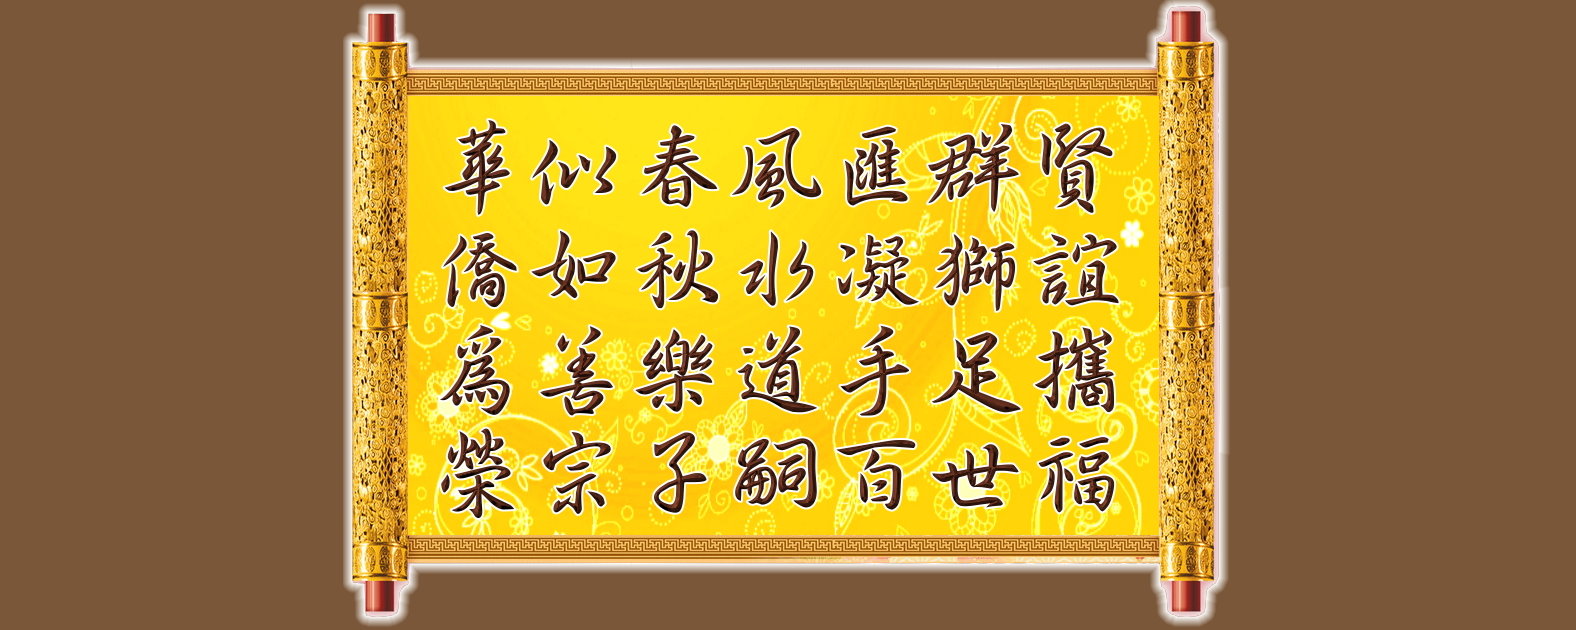 華似春風匯群賢
僑如秋水凝獅誼
爲善樂道手足攜
榮宗子嗣百世福